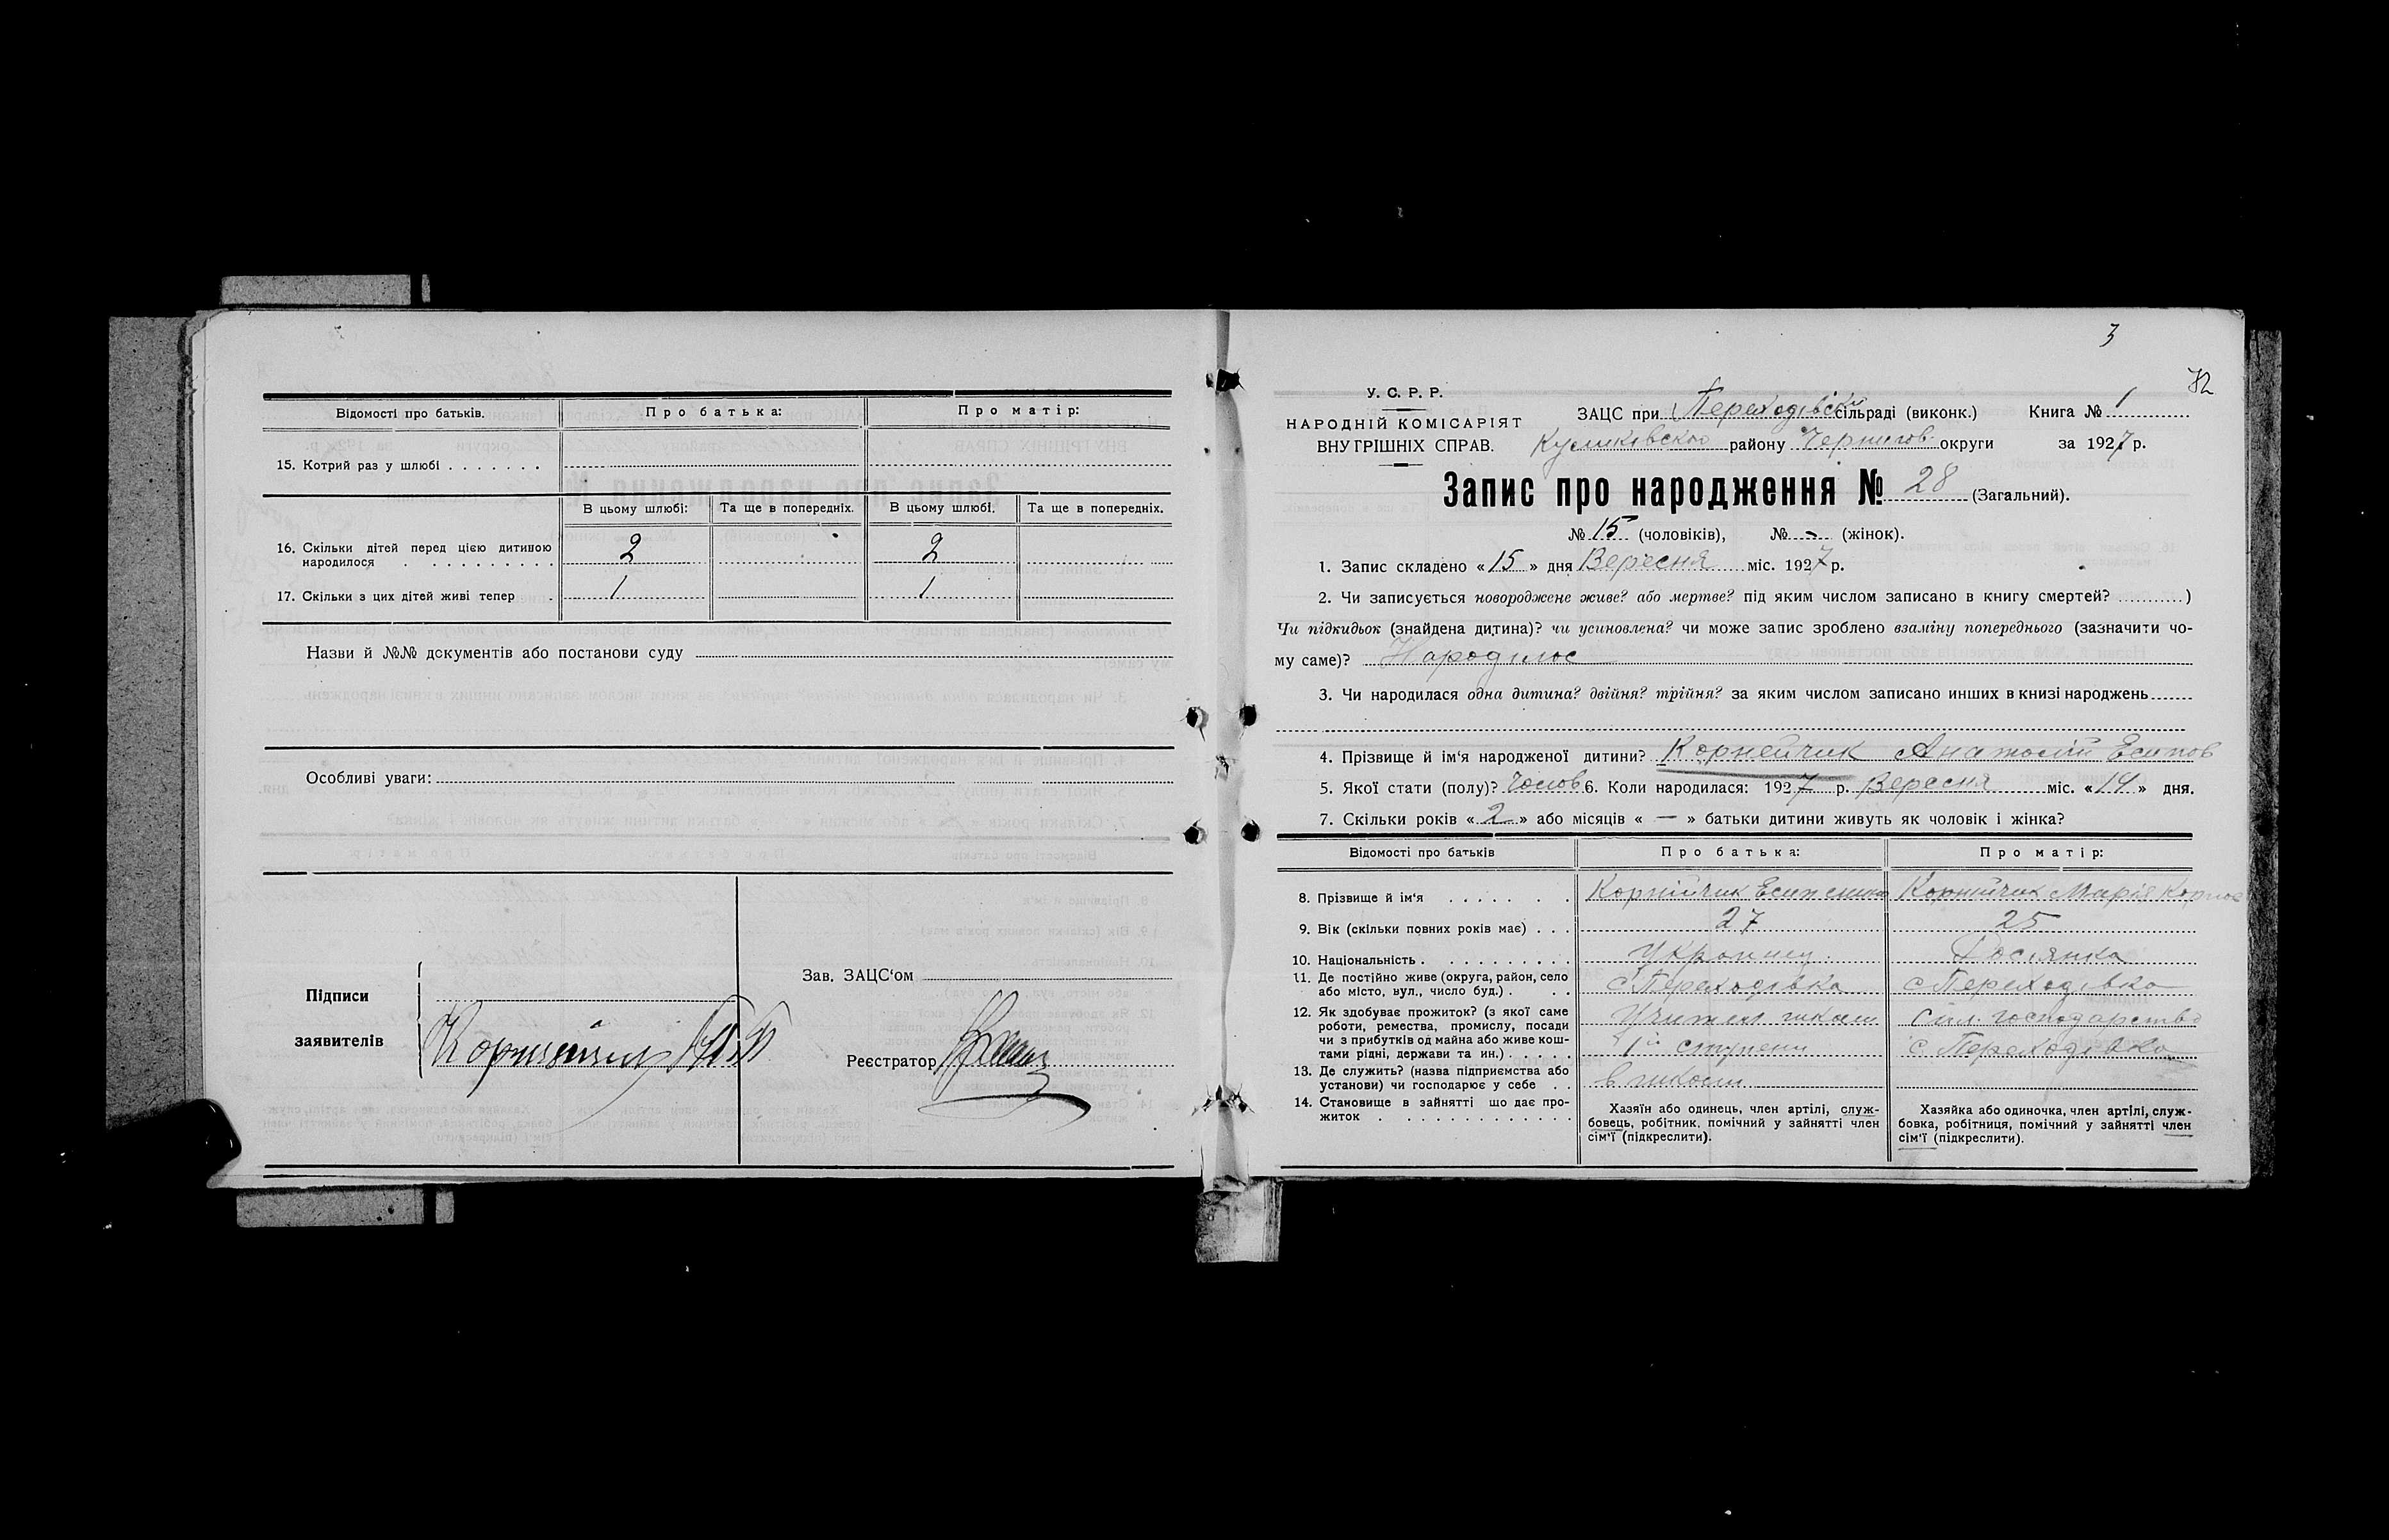 Відомості про батьків. Про батька: Про матір:
15. Котрий раз у шлюбі
В цьому шлюбі: Та ще в попередніх. В цьому шлюбі. Та ще в попередніх.
16. Скільки дітей перед цією дитиною 2 2
народилося
17. Скільки з цих дітей живі тепер 1 1
Назви й №№ документів або постанови суду
Особливі уваги:
Зав. ЗАЦС'ом
Підписи
заявителів
Реєстратор
3
У. С. Р. Р.
НАРОДНІЙ КОМІСАРІЯТ
ВНУТРІШНІХ СПРАВ.
ЗАЦС при Переходівск сільраді (виконк.) Книга № 1
району Чернигов округи за 1927 р.
Запис про народження № 28 (Загальний).
№ 15 (чоловіків), № - (жінок).
1. Запис складено «15» дня Вересня міс. 1927 р.
2. Чи записується новороджене живе? або мертве? під яким числом записано в книгу смертей? )
Чи підкидьок (знайдена дитина)? чи усиновлена? чи може запис зроблено взаміну попереднього (зазначити чо-
му саме)? Народилос
3. Чи народилася одна дитина? двійня? трійня? за яким числом записано инших в книзі народжень
4. Прізвище й ім'я народженої дитини? Корнейчик Анатолій Есипов
5. Якої стати (полу)? Чолов 6. Коли народилася: 1927 р. Вересня міс. «14» дня.
7. Скільки років «2» або місяців « — » батьки дитини живуть як чоловік і жінка?
Відомості про батьків Про батька: Про матір:
8. Прізвище й ім'я Корнійчик Корнійчик Марія
9. Вік (скільки повних років має) 27 25
10. Національність Украинец. Росіянка
11. Де постійно живе (округа, район, село с. Переходівка с. Переходівка
або місто, вул., число буд.)
12. Як здобуває прожиток? (з якої саме Учител школи Сіл. господарство
роботи, ремества, промислу, посади
чи з прибутків од майна або живе кош- 1й ступени с. Переходівка
тами рідні, держави та ин.)
13. Де служить? (назва підприємства або в школи
установи) чи господарює у себе
14. Становище в зайнятті що дає про-
житок
Хазяїн або одинець, член артілі, служ-
бовець, робітник, помічний у зайнятті член
сім'ї (підкреслити).
Хазяйка або одиночка, член артілі, служ-
бовка, робітниця, помічний у зайнятті член
сім'ї (підкреслити).